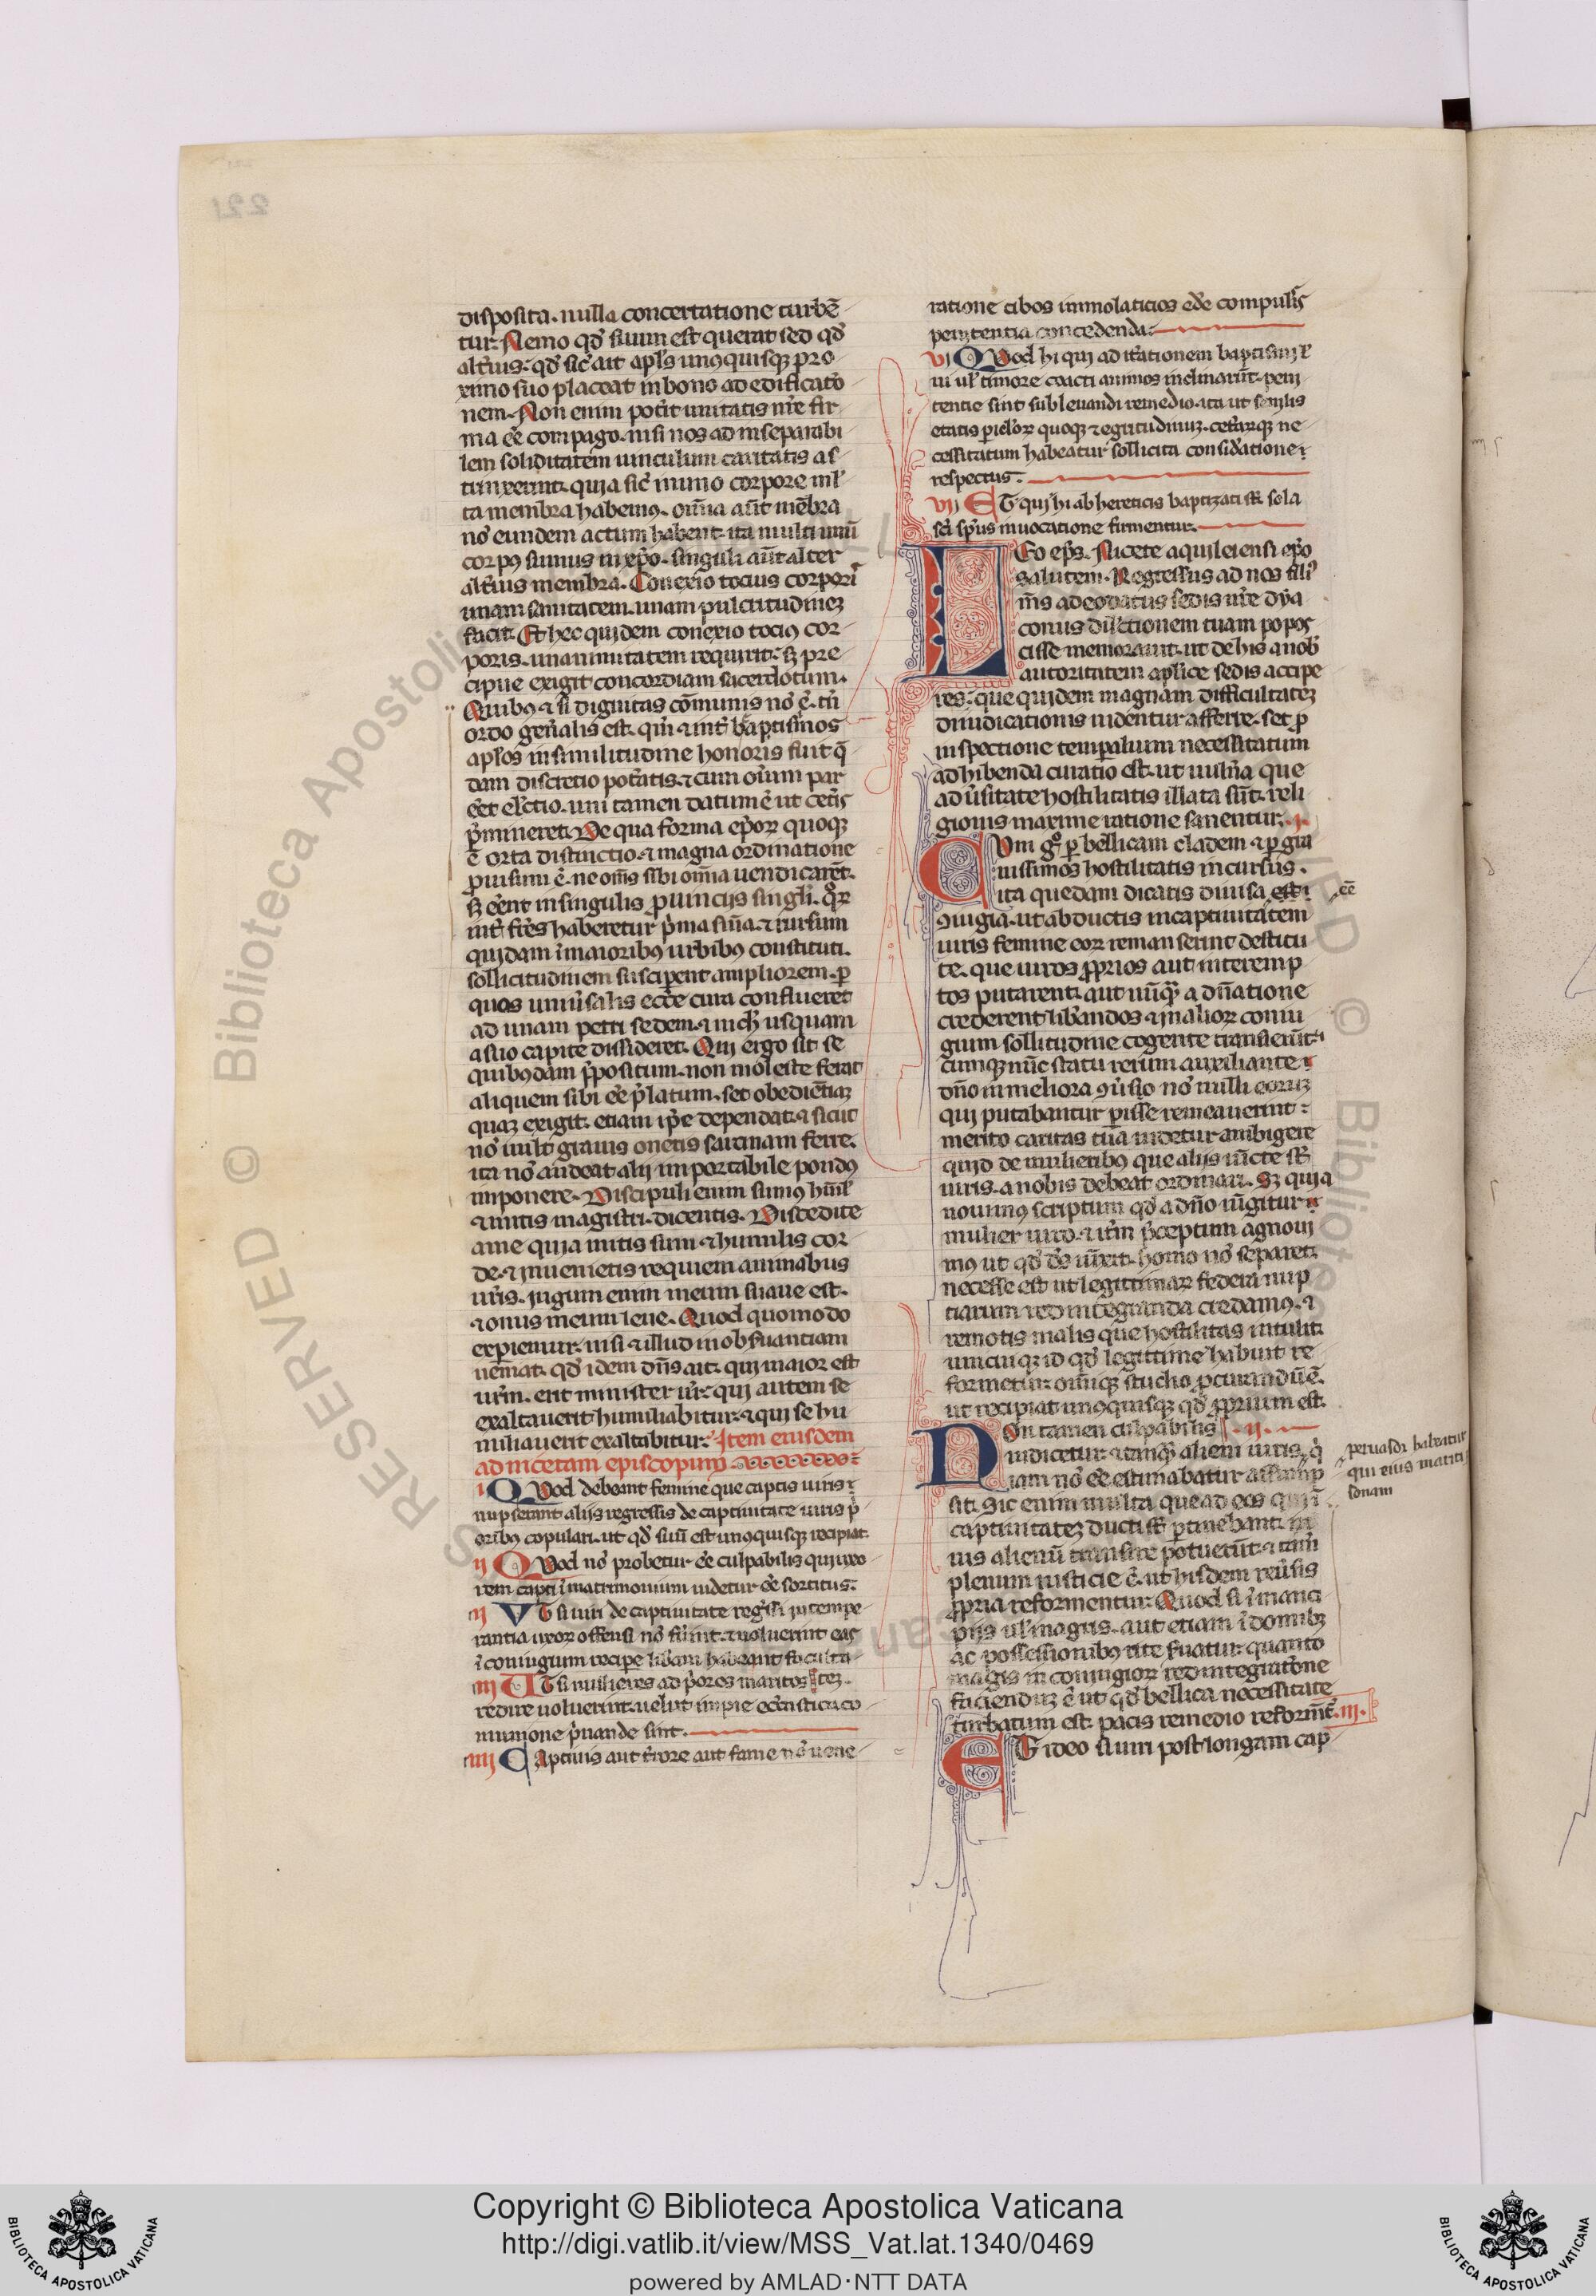 disposita. nulla concertatione turbē
tur. Nemo qd' suum est querat sed qd'
alt'ius. qd' sic' ait apl's unꝰquisqꝫ pro
ximo suo placeat in bono ad edificat'o
nem. Non enim pot'it unitatis n're fir
ma e'e compago. nisi nos ad inseparabi
lem soliditatem uinculum caritatis as
trinxerint. quia sic' in uno corpore ml'
ta membra habemꝰ. om̄ia aūt mēbra
no' eundem actum habent. ita multi unū
corpꝰ sumus in xp̄o. singuli aūt alter
alt'ius membra. Conexio totius corpori'
unam sanitatem. unam pulcritudineꝫ
facit. Et hec quidem conexio totiꝰ cor
poris. unanimitatem requirit. sꝫ pre
cipue exigit concordiam sacerdotum.
Quibꝰ ⁊ si dignitas cōmunis no' ē. tn̄
ordo gen'alis est. qm̄ ⁊ int' baptismos
apl'os in similitudine honoris fuit q̄
dam discretio pot'atis. ⁊ cum om̄um par
e'et el'ctio. uni tamen datum ē ut cet'is
p'mineret. De qua forma ep̄oꝝ quoqꝫ
ē orta distinctio. ⁊ magna ordinatione
prouisum ē. ne om̄s sibi om̄ia uendicarēt.
sꝫ e'ent in singulis prouincijs singl'i. quoꝝ
int' fr̄es haberetur p'ma sn̄ia. ⁊ rursum
quidam ī maioribꝰ urbibꝰ constituti.
sollicitudinem susciperent ampliorem. per
quos uniu'salis ecc̄e cura conflueret
ad unam petri sedem. ⁊ nich' usquam
a suo capite dissideret. Qui ergo sit se
quibꝰdam p'positum. non moleste ferat
aliquem sibi e'e p'latum. set obedientiaꝫ
quaꝫ exigit. etiam ip̄e dependat. ⁊ sicut
no' uult grauis oneris sarcinam ferre.
ita no' audeat alij importabile pondꝰ
imponere. Discipuli enim sumꝰ hūil'
⁊ mitis magistri. dicentis. Discedite
a me quia mitis sum ⁊ humilis cor
de. ⁊ inuenietis requiem animabus
ur̄is. iugum enim meum suaue est.
⁊ onus meum leue. Quod quomodo
experiemur. nisi ⁊ illud in obseruantiam
ueniat. qd' idem dn̄s ait. qui maior est
ur̄m. erit minister ur̄. qui autem se
exaltauerit humiliabitur. ⁊ qui se hu
miliauerit exaltabitur. Item eiusdem
ad nicetam episcopum
i Quod debeant femine que captis uiris
nupserant alijs regressis de captiuitate uiris p'
oribꝰ copulari. ut qd' suū est unꝰquisqꝫ recipiat.
ii Quod no' probetur e'e culpabilis qui uxo
rem capti ī matrimonium uidetur e'e sortitus.
iij Vt si uiri de captiuitate reg'ssi intempe
rantia uxoꝝ offensi no' fu'int. ⁊ uoluerint eas
ī coniugium recipere lib'am habeant faculta
iiij Ut si mulieres ad p'ores maritos teꝫ.
redire noluerint. uelut impie eccl'astica co
munione p'uande sint.
iiiij Captiuis aut t'rore aut fame no' uene
ratione cibos immolaticios ede' compulsis
penitentia concedenda.
vi Quod hi qui ad it'ationem baptismi ł'
ui ul' timore coacti animos inclinarūt. peni
tentie sint subleuandi remedio. ita ut senilis
etatis p'iclo'ꝝ quoqꝫ ⁊ egritudinuꝫ. cet'arqꝫ ne
cessitatum habeatur sollicita consid'atione
respectus.
vij Et qui hi ab hereticis baptizati sūt sola
sc̄i sp̄us inuocatione firmentur.
Leo ep̄s. Nicete aquileiensi ep̄o
salutem. Regressus ad nos fili'
m̄s adeodatus sedis n're dya
conus dil'ctionem tuam popos
cisse memorauit. ut de his a nob'
autoritatem ap̄lice sedis accipe
res. que quidem magnam difficultateꝫ
diiudicationis uidentur afferre. set p
inspectione temporalium necessitatum
adhibenda curatio est. ut uuln'a que
adu'sitate hostilitatis illata sūt. reli
gionis maxime ratione sanentur. .i.
Cum g' per bellicam cladem ⁊ per gra
uissimos hostilitatis incursus.
ita quedam dicatis diuisa esse
ꝯiugia. ut abductis in captiuitatem
uiris femine eoꝝ remanserint destitu
te. que uiros proprios aut interemp
tos putarent. aut nūqm̄ a dn̄atione
crederent lib'andos ⁊ in alioꝝ coniu
gium sollitudine cogente transierūt.
cumqꝫ nūc statu rerum auxiliante
dn̄o in meliora ꝯu'so no' nulli eoruꝫ
qui putabantur perisse remeauerint.
merito caritas tua uidetur ambigere
quid de mulieribꝰ que alijs iūcte sūt
uiris. a nobis debeat ordinari. Sꝫ quia
nouimꝰ scriptum qd' a dn̄o iūgitur
mulier uiro. ⁊ it'm p'ceptum agnoui
mꝰ ut qd' de's iūxit. homo no' separet.
necesse est ut legittimaꝝ federa nup
tiarum redintegranda credamꝰ. ⁊
remotis malis que hostilitas intulit.
unicuiqꝫ id qd' legittime habuit re
formetur. omiqꝫ studio procurandū ē.
ut recipiat unꝰquisqꝫ qd' proprium est.
Non tamen culpabilis .ii.
iudicetur. ⁊ tanqꝫ alieni iuris. q'
iam no' e'e estimabatur assump
sit. Sic enim multa que ad eos qui ī
captiuitateꝫ ducti sūt pertinebant. in
ius alienū transire potuerūt. ⁊ tam̄
plenum iusticie ē. ut hisdem reu'sis
propria reformentur. Quod si ī manci
pijs ul' in agris. aut etiam ī domibꝫ
ac possessionibꝰ rite seruatur. quanto
magis in coniugioꝝ redintegrat'one
faciendūꝫ ē ut qd' bellica necessitate
turbatum est. pacis remedio reformet. .iii.
Et ideo si uiri post longam cap
ēē
peruasor habeatur
qui eius mariti
sonam
221
Copyright © Biblioteca Apostolica Vaticana
http://digi.vatlib.it/view/MSS_Vat.lat.1340/0469
powered by AMLAD·NTT DATA
BIBLIOTECA APOSTOLICA VATICANA
BIBLIOTECA APOSTOLICA VATICANA